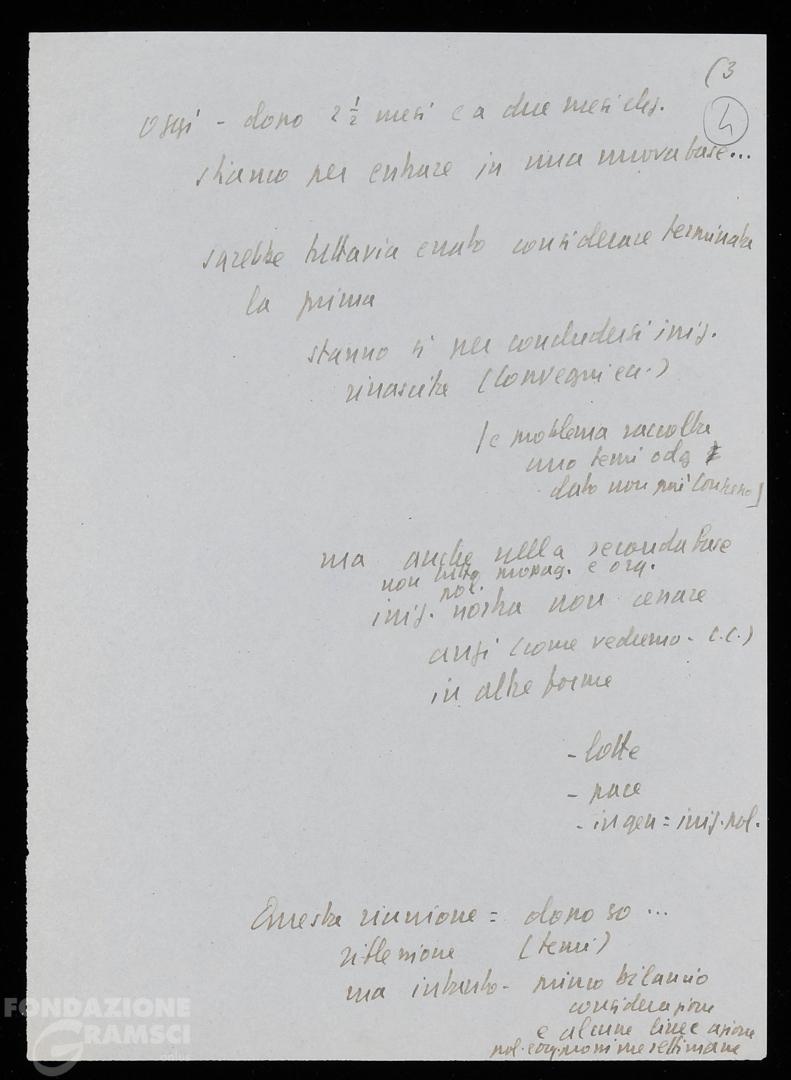 (3
4
oggi - dopo 2 1/2 mesi e a due mesi
stiamo per entrare in una nuova fase...
sarebbe tuttavia errato considerare terminata
la prima
stanno sì per concludersi iniz.
rinascita (convegni ecc.)
[e problema raccolta
uno temi odg
dato non più
ma anche nella seconda fase
non tutto propag. e org.
pol.
iniz. nostra non cessare
anzi (come vedremo - C.C.)
in altre forme
- lotte
- pace
- in gen = iniz. pol.
Questa riunione = dopo so...
riflessione (temi)
ma intanto - primo bilancio
considerazione
e alcune linee azione
pol. e org. prossime settimane
FONDAZIONE
GRAMSCI
onlus